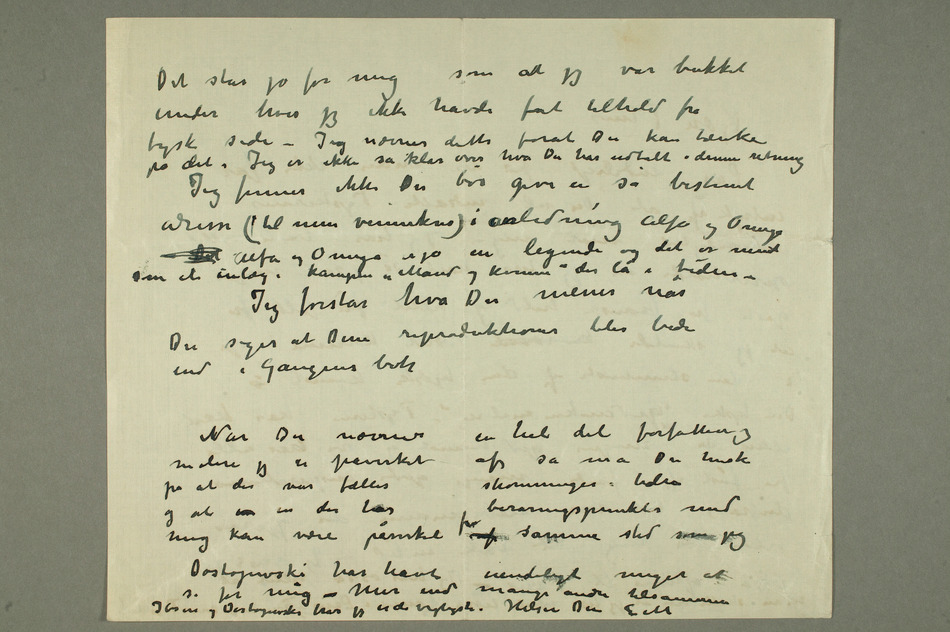 Det står jo for mig som at jeg var bukket
under hvis jeg ikke havde fåt tilhold fra
tysk side – Jeg nævner dette forat Du kan tænke
på det. Jeg er ikke så klar over hva Du har udtalt i denne retning
Jeg finner ikke Du bør give en så bestemt
adresse (til min veninne) i anledning Alfa og Omega
Alfa og Omega er jo en legende og det er mere
som et inlæg i kampen „Mand og kvinne" der lå i tiden –
Jeg forstår hva Du mener når
Du siger at Dine reproduktioner blir bedre
end i Gaugens bok
Når Du nævner en hel del forfattere og
malere jeg er påvirket af, så må Du huske
på at der var fælles strømninger i tiden
og at en der har berøringspunkter med
mig kan være påvirket fra samme sted som jeg
Dostojewski har havt uendeligt meget at
si for mig – Mer end mange andre tilsammen
Ibsen og Dostojewski tror jeg er de vigtigste. Hilsen Din E M